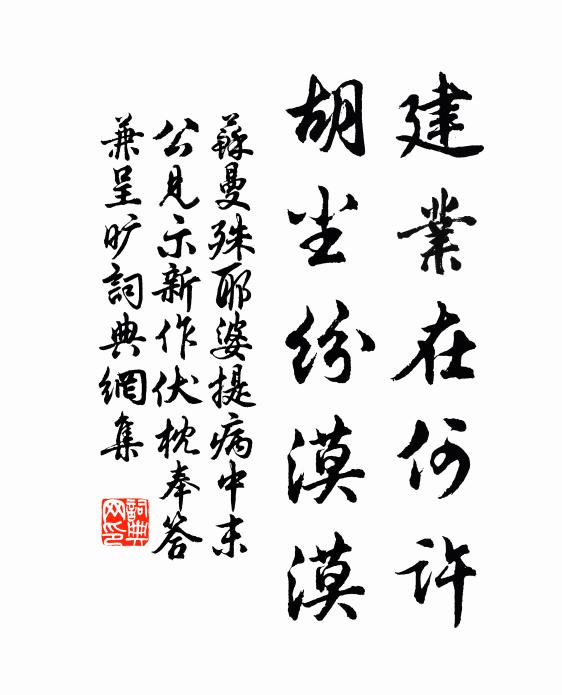 建業在何許
胡尘紛漠漠
蘇曼殊耶婆提病中末
公見示新作伏枕奉答
兼呈旷詞典網集
詞典网印